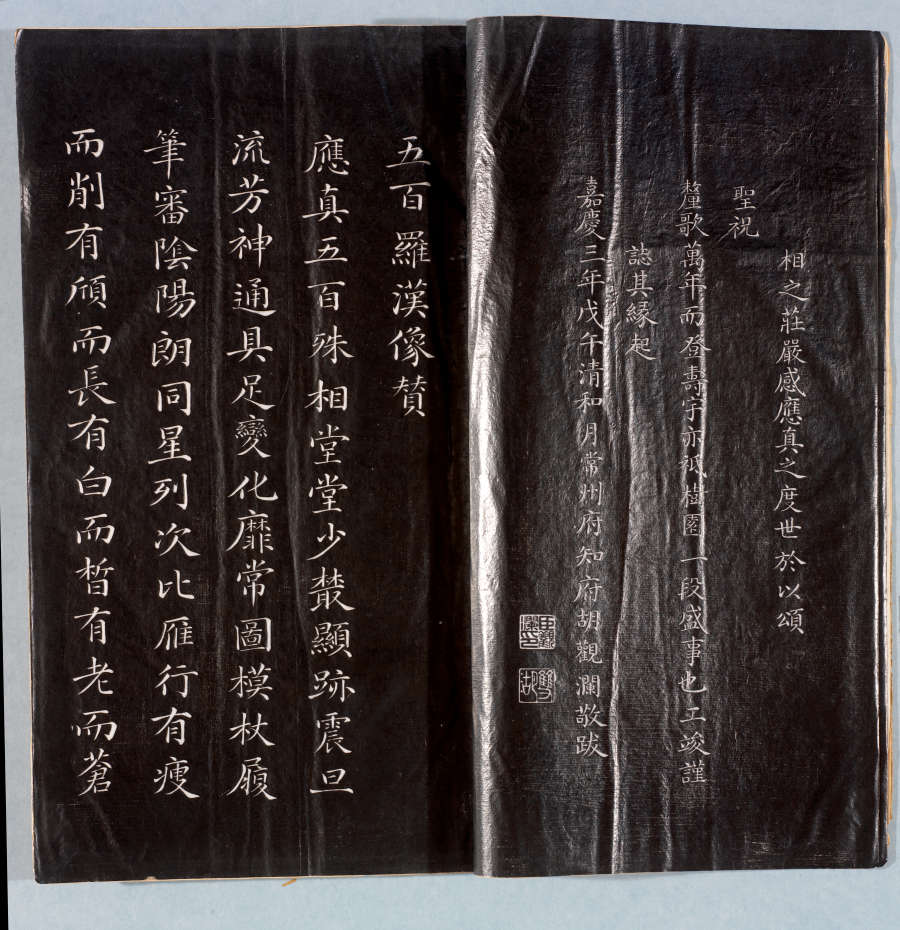 相之莊嚴感應真之度世於以頌
聖祝
釐歌萬年而登壽宇亦祇樹園一段盛事也工竣謹
誌其緣起
嘉慶三年戊午清和月常州府知府胡觀瀾敬跋
五百羅漢像贊
應真五百殊相堂堂少藂顯跡震旦
流芳神通具足變化靡常圖模杖履
筆審陰陽朗同星列次比雁行有瘦
而削有頎而長有白而晳有老而蒼